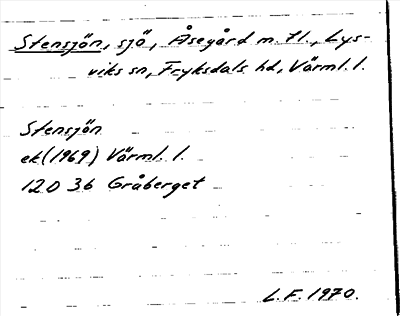 Stensjön, sjö, Åsegård m. fl., Lys-
viks sn, Fryksdals hd, Värml. l.
Stensjön
ek (1969) Värml. l.
120 36 Gråberget
L.F. 1970.